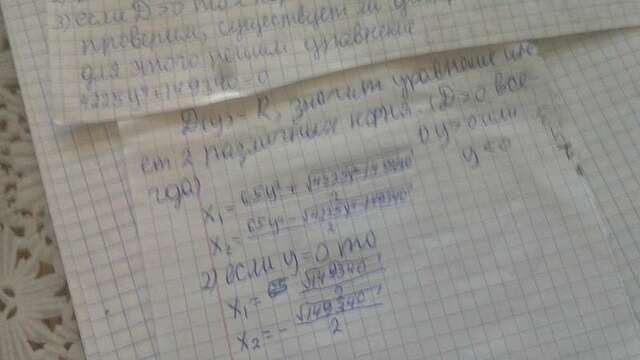 3) если D>0
проверим, существует ли
для этого решим уравнение
4225y⁴+149340=0
D(y)=R, значит уравнение име
ет 2 различных корня (D>0 все
гда)
1) y>0 или y<0
x₁= 65y²+√4225y⁴+149340 / 2
x₂= 65y²-√4225y⁴+149340 / 2
2) если y=0 то
x₁= √149340 / 2
x₂= - √149340 / 2